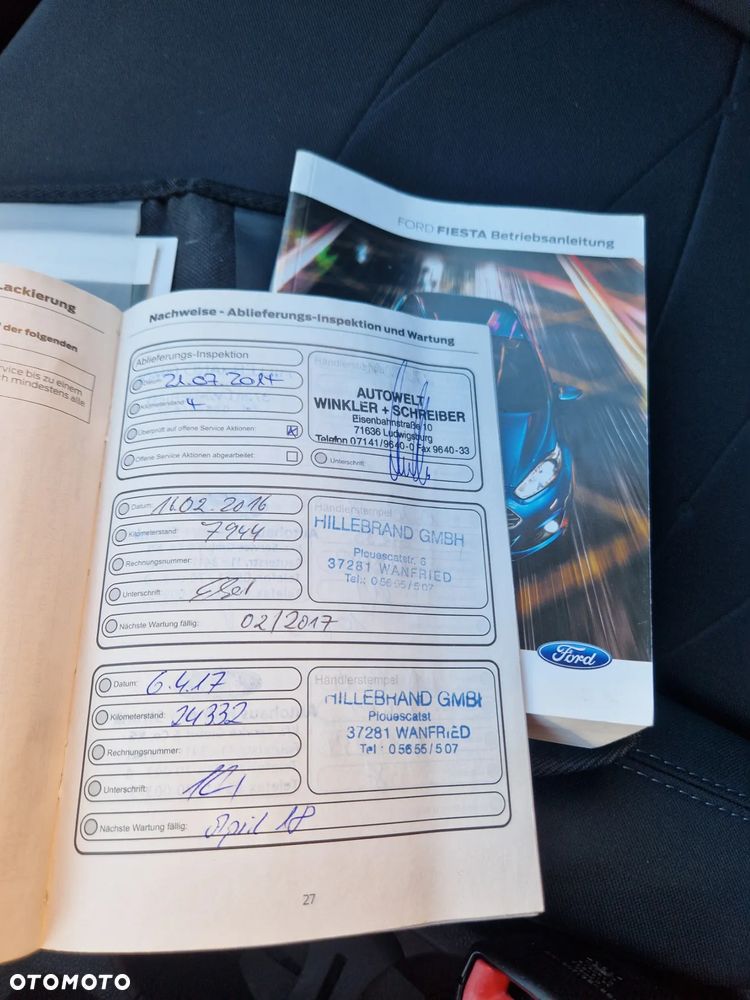 FORD FIESTA Betriebsanleitung
Ford
Lackierung
der folgenden
vice bis zu einem
h mindestens alle
Nachweise - Ablieferungs-Inspektion und Wartung
Ablieferungs-Inspektion
Datum: 21.07.2014
Kilometerstand: 4
Überprüft auf offene Service Aktionen:
Offene Service Aktionen abgearbeitet:
Händlerstempel
AUTOWELT
WINKLER + SCHREIBER
Eisenbahnstraße 10
71636 Ludwigsburg
Telefon 07141/9640-0 Fax 9640-33
Unterschrift:
Datum: 16.02.2016
Kilometerstand: 7944
Rechnungsnummer:
Unterschrift:
Nächste Wartung fällig: 02/2017
Händlerstempel
HILLEBRAND GMBH
Plouescatstr. 6
37281 WANFRIED
Tel.: 05655/507
Datum: 6.4.17
Kilometerstand: 24332
Rechnungsnummer:
Unterschrift:
Nächste Wartung fällig: April 18
Händlerstempel
HILLEBRAND GMBH
Plouescatst
37281 WANFRIED
Tel.: 05655/507
27
OTOMOTO